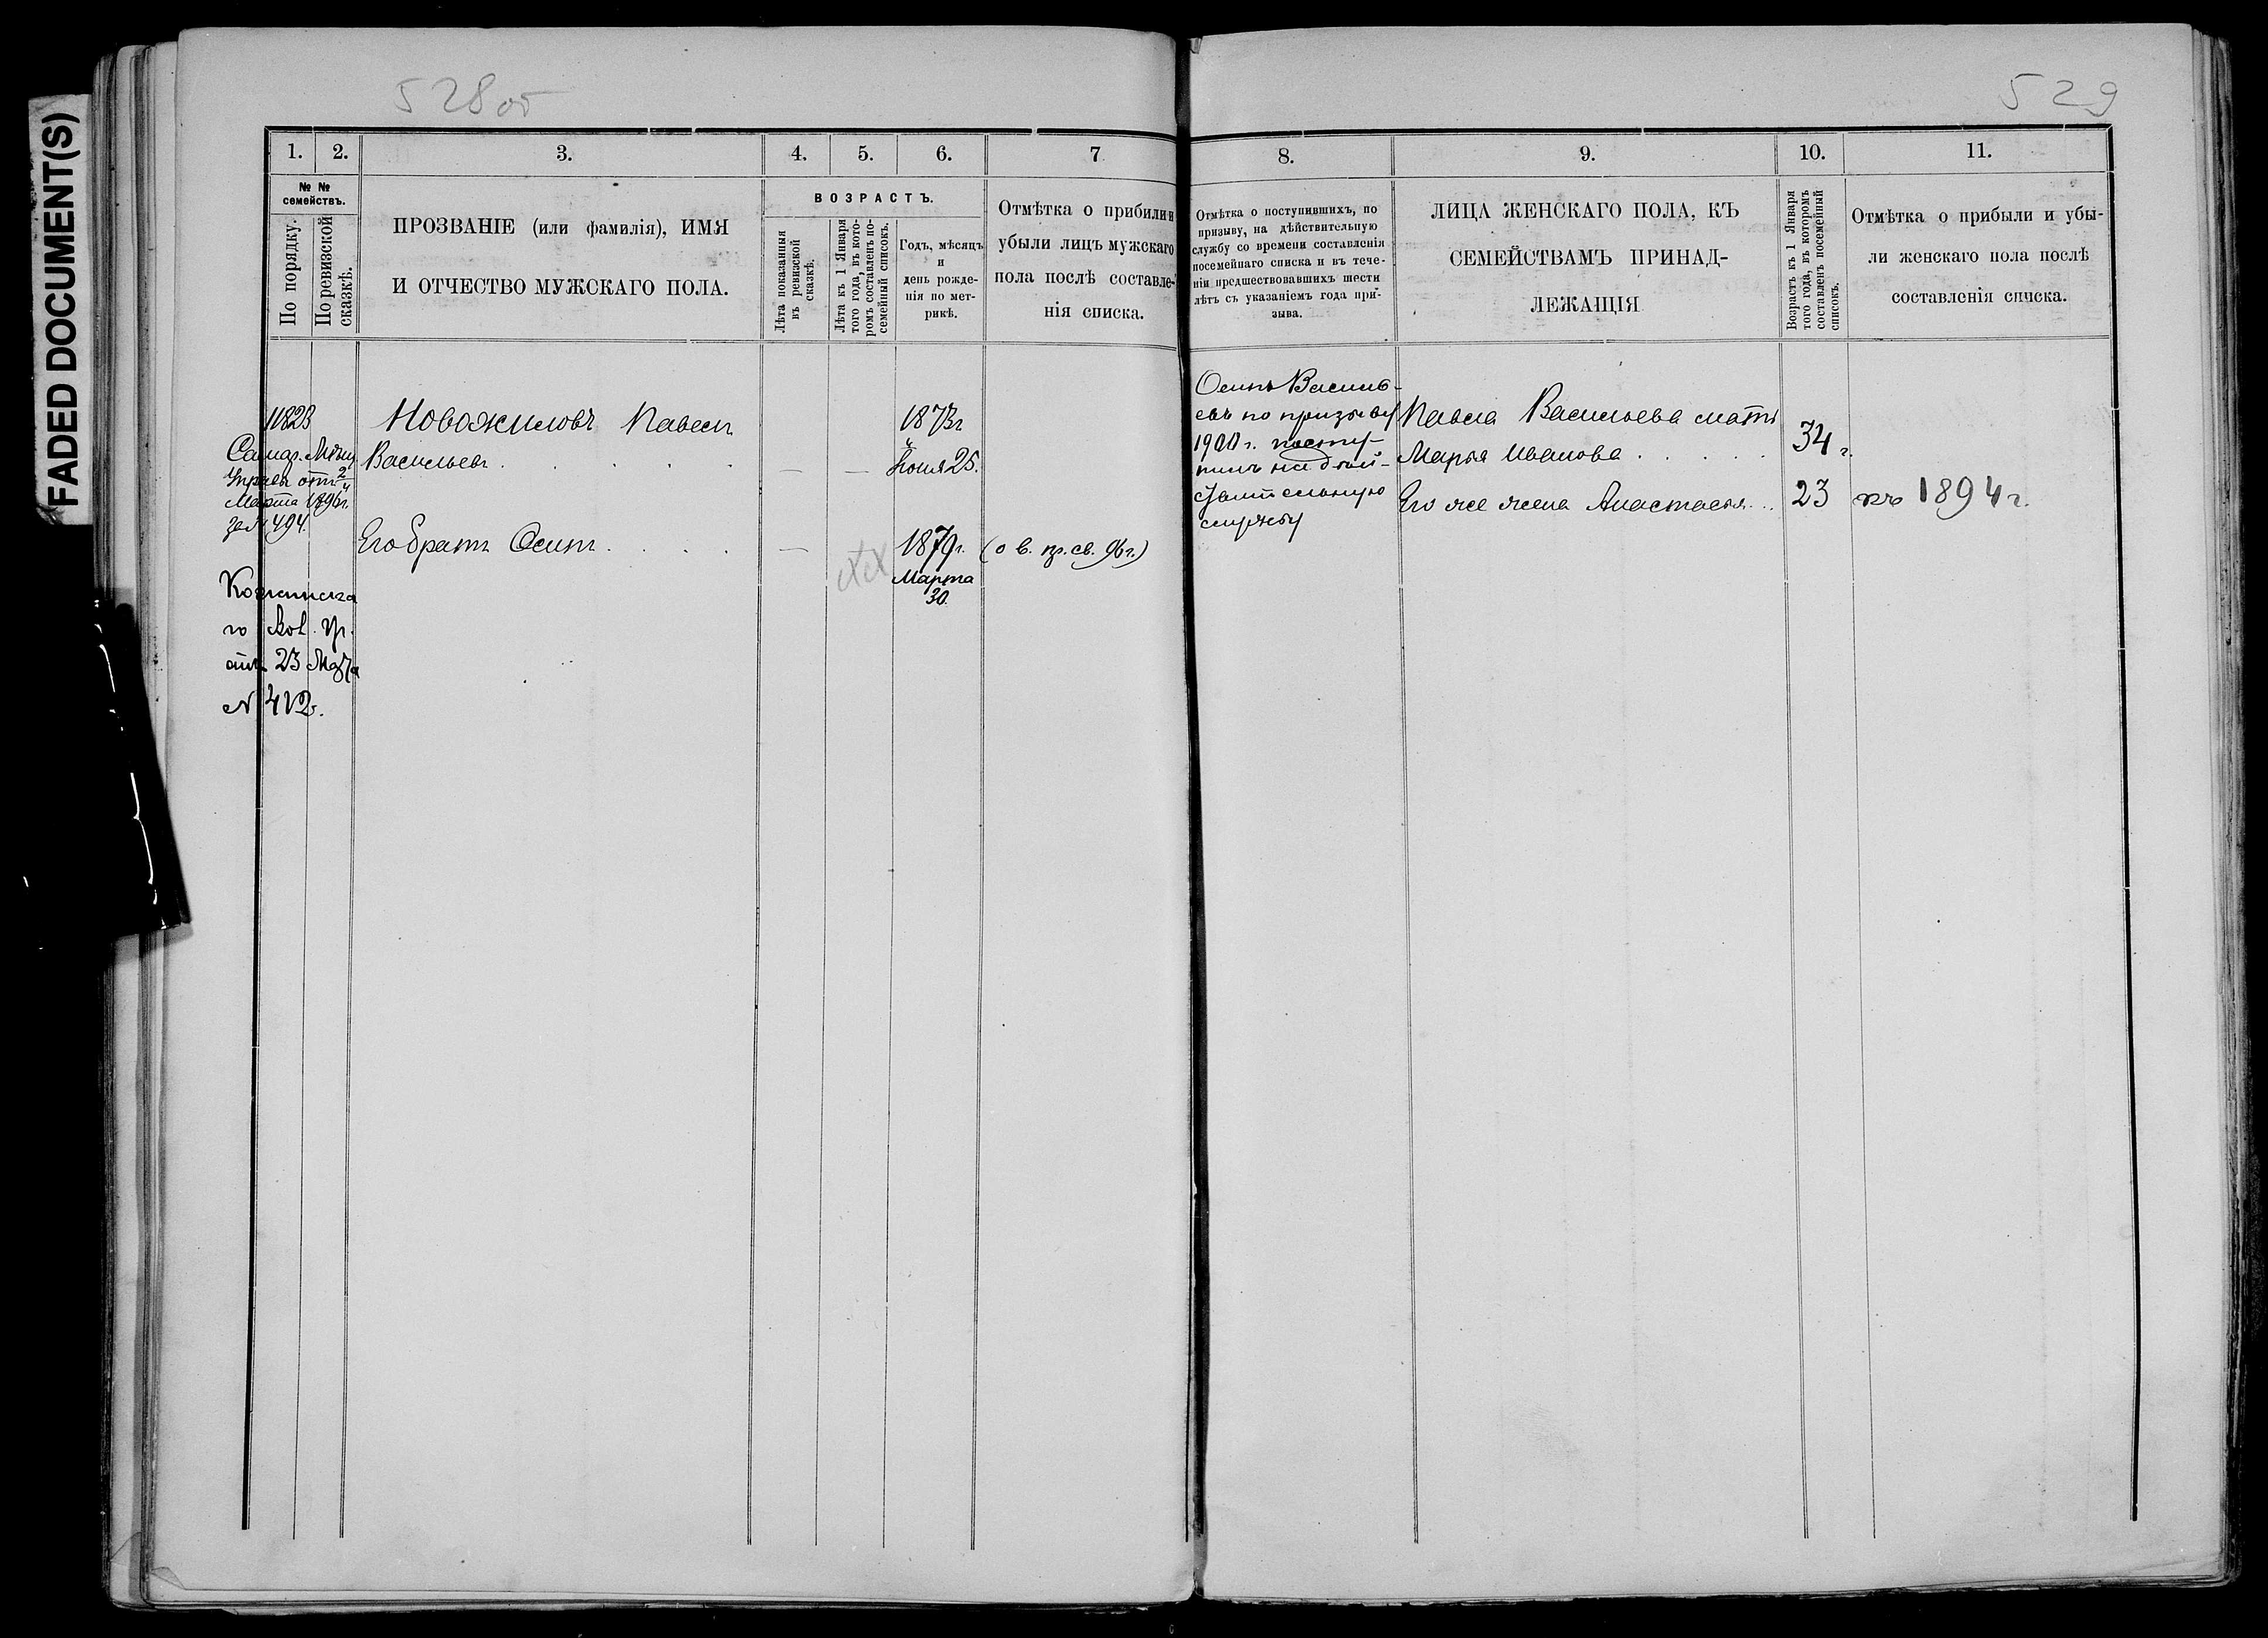 FADED DOCUMENT(S)
528об
1. 2. 3. 4. 5. 6. 7
№ № семействъ.
По порядку.
По ревизской сказкѣ.
ПРОЗВАНІЕ (или фамилія), ИМЯ
И ОТЧЕСТВО МУЖСКАГО ПОЛА.
ВОЗРАСТЪ.
Лѣта показанныя
въ ревизской
сказкѣ.
Лѣта къ 1 Января
того года, въ кото-
ромъ составленъ по-
семейный списокъ.
Годъ, мѣсяцъ
и
день рожде-
нія по мет-
рикѣ.
Отмѣтка о прибыли и
убыли лицъ мужскаго
пола послѣ составле-
нія списка.
11823
Новожиловъ Павелъ
Васильевъ . . . . .
1873г
Іюня 25.
Управы отъ
Марта 1896г.
за № 494.
Его братъ Осипъ . . . .
1879г.
Марта
30.
(о в. пр. св. 96 г.)
отъ 23 Марта
№ 412.
529
8. 9. 10. 11.
Отмѣтка о поступившихъ, по
призыву, на дѣйствительную
службу со времени составленія
посемейнаго списка и въ тече-
ніи предшествовавшихъ шести
лѣтъ съ указаніемъ года при-
зыва.
ЛИЦА ЖЕНСКАГО ПОЛА, КЪ
СЕМЕЙСТВАМЪ ПРИНАД-
ЛЕЖАЩІЯ
Возрастъ къ 1 Января
того года, въ которомъ
составленъ посемейный
списокъ.
Отмѣтка о прибыли и убы-
ли женскаго пола послѣ
составленія списка.
Осипъ Василь-
евъ по призыву
1900 г. посту-
пилъ на дѣй-
ствительную
службу
Павла Васильева мать
Марья Иванова . . . . .
34 г.
Его же жена Анастасья . . .
23
къ 1894 г.